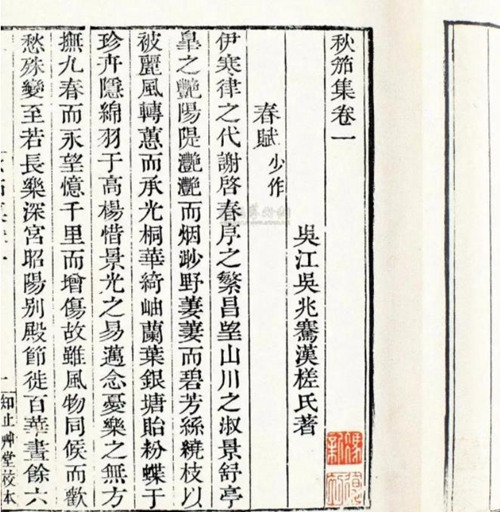 秋笳集卷一
吳江吳兆騫漢槎氏著
春賦 少作
伊寒律之代謝啓春序之繁昌望山川之淑景舒亭
皋之艷陽隄灔灔而烟渺野萋萋而碧芳絲繞枝以
被麗風轉蕙而承光桐華綺岫蘭葉銀塘貽粉蝶于
珍卉隱綿羽于高楊惜景光之易邁念憂樂之無方
撫九春而永望憶千里而增傷故雖風物同候而歡
愁殊變至若長樂深宮昭陽別殿節徙百華晝餘六
一 知止艸堂校本